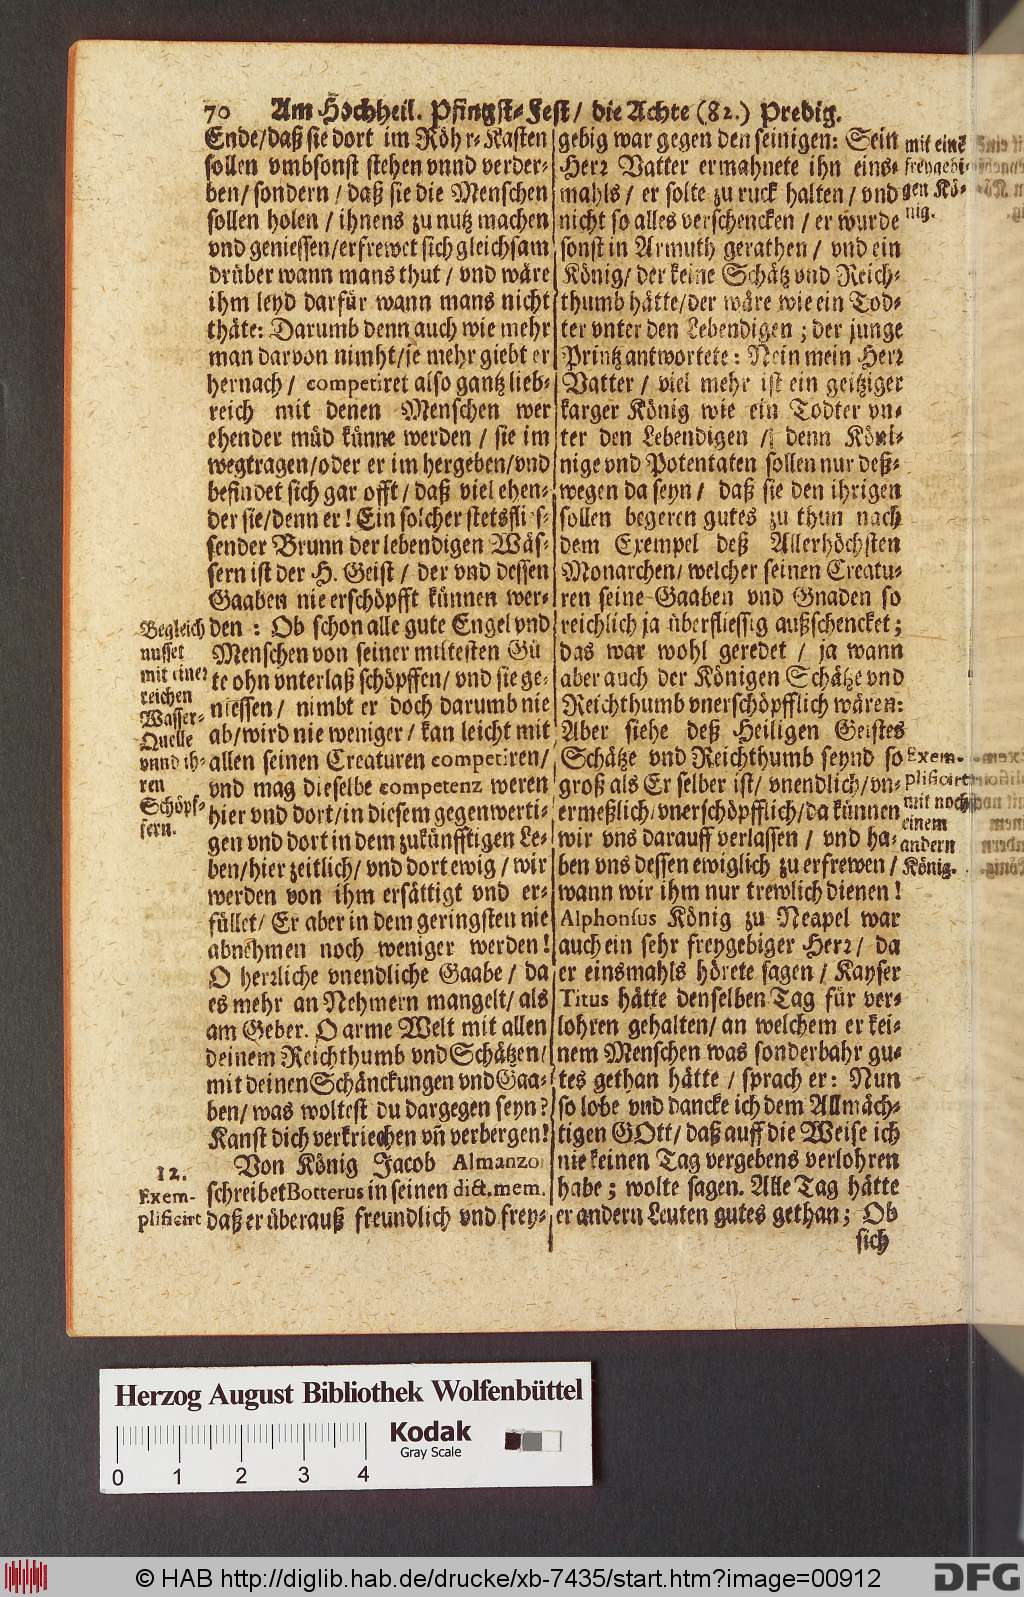 70 Am Hochheil. Pfingst-Fest/ die Achte (82.) Predig.
Ende/daß sie dort im Röhr-Kasten
sollen vmbsonst stehen vnnd verder-
ben/sondern/daß sie die Menschen
sollen holen/ ihnens zu nutz machen
vnd geniessen/erfrewet sich gleichsam
drüber wann mans thut/ vnd wäre
ihm leyd darfür wann mans nicht
thäte: Darumb denn auch wie mehr
man darvon nimht/je mehr giebt er
hernach/ competiret also gantz lieb-
reich mit denen Menschen wer
ehender müd künne werden/ sie im
wegtragen/oder er im hergeben/vnd
befindet sich gar offt/daß viel ehen-
der sie/denn er! Ein solcher stetsflies-
sender Brunn der lebendigen Wäs-
sern ist der H. Geist/ der vnd dessen
Gaaben nie erschöpfft künnen wer-
den: Ob schon alle gute Engel vnd
Menschen von seiner miltesten Gü
te ohn vnterlaß schöpffen/ vnd sie ge-
niessen/ nimbt er doch darumb nie
ab/wird nie weniger/ kan leicht mit
allen seinen Creaturen competiren/
vnd mag dieselbe competenz weren
hier vnd dort/in diesem gegenwerti-
gen vnd dort in dem zukünfftigen Le-
ben/hier zeitlich/ vnd dort ewig/ wir
werden von ihm ersättigt vnd er-
füllet/ Er aber in dem geringsten nie
abnehmen noch weniger werden!
O herrliche vnendliche Gaabe/ da
es mehr an Nehmern mangelt/ als
am Geber. O arme Welt mit allen
deinem Reichthumb vnd Schätzen/
mit deinen Schänckungen vnd Gaa-
ben/ was woltest du dargegen seyn?
Kanst dich verkriechen vñ verbergen!
Von König Jacob Almanzo
schreibet Botterus in seinen dict. mem.
daß er überauß freundlich vnd frey-
Begleich
nusset
mit einer
reichen
Wasser-
Quelle
vnnd ih-
ren
Schöpf-
fern.
12.
Exem-
plificirt
gebig war gegen den seinigen: Sein
Herr Vatter ermahnete ihn eins-
mahls/ er solte zu ruck halten/ vnd
nicht so alles verschencken/ er wurde
sonst in Armuth gerathen/ vnd ein
König/ der keine Schätz vnd Reich-
thumb hätte/der wäre wie ein Tod-
ter vnter den Lebendigen; der junge
Printz antwortete: Nein mein Herr
Vatter/ viel mehr ist ein geitziger
karger König wie ein Todter vn-
ter den Lebendigen/ denn Köni-
nige vnd Potentaten sollen nur deß-
wegen da seyn/ daß sie den ihrigen
sollen begeren gutes zu thun nach
dem Exempel deß Allerhöchsten
Monarchen/ welcher seinen Creatu-
ren seine Gaaben vnd Gnaden so
reichlich ja überfliessig außschencket;
das war wohl geredet/ ja wann
aber auch der Königen Schätze vnd
Reichthumb vnerschöpfflich wären:
Aber siehe deß Heiligen Geistes
Schätze vnd Reichthumb seynd so
groß als Er selber ist/ vnendlich/ vn-
ermeßlich/ vnerschöpfflich/da künnen
wir vns darauff verlassen/ vnd ha-
ben vns dessen ewiglich zu erfrewen/
wann wir ihm nur trewlich dienen!
Alphonsus König zu Neapel war
auch ein sehr freygebiger Herr/ da
er einsmahls hörete sagen/ Kayser
Titus hätte denselben Tag für ver-
lohren gehalten/ an welchem er kei-
nem Menschen was sonderbahr gu-
tes gethan hätte/ sprach er: Nun
so lobe vnd dancke ich dem Allmäch-
tigen GOtt/ daß auff die Weise ich
nie keinen Tag vergebens verlohren
habe; wolte sagen. Alle Tag hätte
er andern Leuten gutes gethan; Ob
sich
mit einē
freygebi-
gen Kö-
nig.
Exem-
plificirt
mit noch
einem
andern
König.
Herzog August Bibliothek Wolfenbüttel
Kodak
Gray Scale
0 1 2 3 4
© HAB http://diglib.hab.de/drucke/xb-7435/start.htm?image=00912
DFG